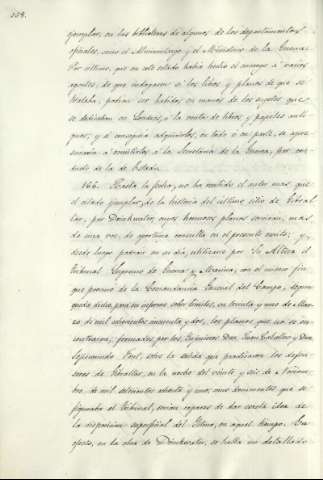 554.
ejemplar, en las bibliotecas de algunos de los departamentos
oficiales, como el Almirantazgo y el Ministerio de la Guerra.
Por último, que en este estado había hecho el encargo a varios
agentes de que indagasen si los libros y planos de que se
trataba, podían ser habidos, en manos de los sujetos que
se dedicaban en Londres, a la venta de libros y papeles anti-
guos; y si conseguía adquirirlos, en todo ó en parte, se apre-
suraría a remitirlos a la Secretaría de la Guerra, por con-
ducto de la de Estado.
166. Hasta la fecha, no ha recibido el autor mas que
el citado ejemplar, de la historia del último sitio de Gibral-
tar, por Drinkwater, cuyos hermosos planos servirán, mas
de una vez, de oportuna consulta en el presente escrito; y,
desde luego podrán en su día, utilizarse por Su Alteza el
Tribunal Supremo de Guerra y Marina, con el mismo fin
que procuró de la Comandancia General del Campo, según
queda dicho, para su informe sobre límites, en treinta y uno de Mar-
zo de mil ochocientos cincuenta y dos, los planos que no se en-
contraron; formados por los Ingenieros Don Juan Caballero y Don
Segismundo Font, sobre la salida que practicaron los defen-
sores de Gibraltar, en la noche del veinte y seis de Noviem-
bre de mil setecientos ochenta y uno; cuyos documentos, que se
figuraba el Tribunal, serían capaces de dar exacta idea de
la disposición superficial del Istmo, en aquel tiempo. En
efecto, en la obra de Drinkwater, se halla un detallado